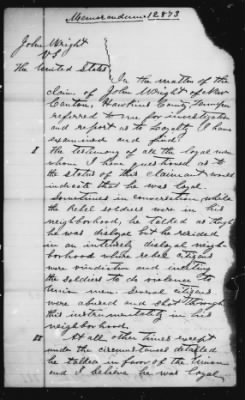 Memorandum 12873
John Wright
VS
The United States
In the matter of the
claim of John Wright of New
Canton, Hawkins County,
referred to me for investigation
and report as to Loyalty I have
examined and find:
I The testimony of all the loyal men
whom I have questioned as to
the status of this claimant would
indicate that he was loyal.
Sometimes in conversation while
the rebel soldiers were in his
neighborhood, he talked as though
he was disloyal but he resided
in an intirely disloyal neigh-
borhood where rebel citizens
were vindictive and inciting
the soldiers to do violence to
Union men. Several citizens
were abused and shot through
this instrumentality in his
neighborhood.
II At all other times except
under the circumstances detailed
he talked in favor of the Union
and I believe he was loyal